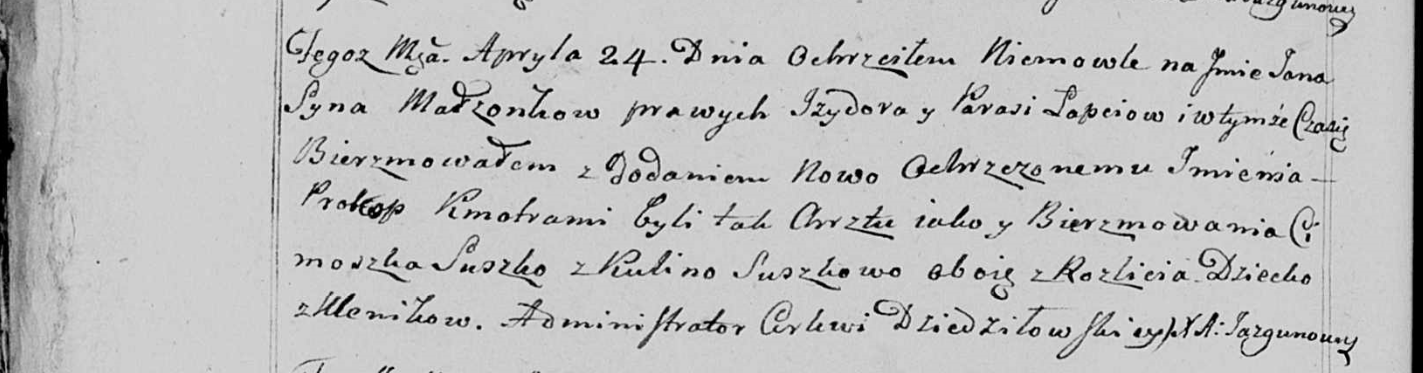 Tegoż Mca. Apryla 24. Dnia Ochrzciłem Niemowle na Jmie Jana
Syna Małzonkow prawych Jzydora y Parasi Łapciow i wtymże Czasię
Bierzmowałem z Dodaniem Nowo Ochrzczonemu Jmienia
Prokop Kmotrami byli tak Chrztu iako y Bierzmowania Ci
moszka Suszko z Kulino Suszkowo oboię z Rozlicia Dziecko
z Klenikow. Administrator Cerkwi Dziedziłowski A: Jazgunowy